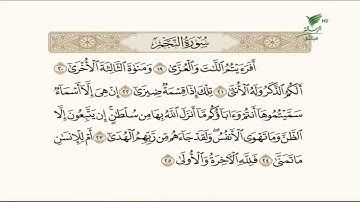 سُورَةُ النَّجْمِ
أَفَرَءَيْتُمُ ٱللَّٰتَ وَٱلْعُزَّىٰ ١٩ وَمَنَوٰةَ ٱلثَّالِثَةَ ٱلْأُخْرَىٰٓ ٢٠
أَلَكُمُ ٱلذَّكَرُ وَلَهُ ٱلْأُنثَىٰ ٢١ تِلْكَ إِذًا قِسْمَةٌ ضِيزَىٰٓ ٢٢ إِنْ هِىَ إِلَّآ أَسْمَآءٌ
سَمَّيْتُمُوهَآ أَنتُمْ وَءَابَآؤُكُم مَّآ أَنزَلَ ٱللَّهُ بِهَا مِن سُلْطَٰنٍ ۚ إِن يَتَّبِعُونَ إِلَّا
ٱلظَّنَّ وَمَا تَهْوَى ٱلْأَنفُسُ ۖ وَلَقَدْ جَآءَهُم مِّن رَّبِّهِمُ ٱلْهُدَىٰٓ ٢٣ أَمْ لِلْإِنسَٰنِ
مَا تَمَنَّىٰ ٢٤ فَلِلَّهِ ٱلْءَاخِرَةُ وَٱلْأُولَىٰ ٢٥
HD